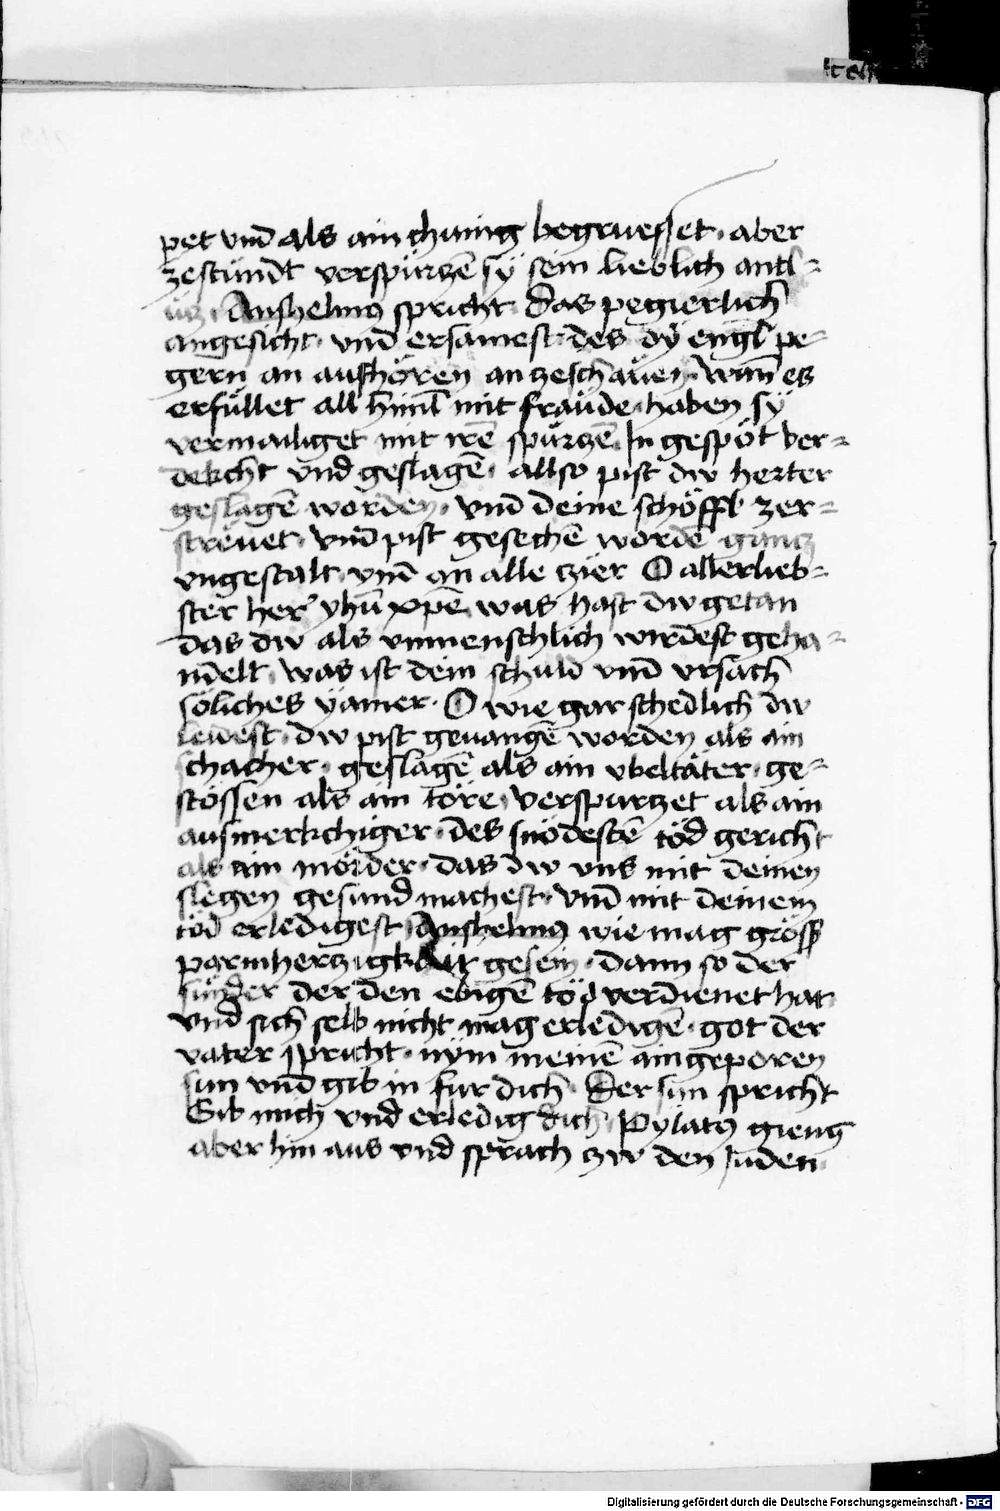 pet vnd als ain chunig begruesset · aber
zestundt verspürtzē sÿ sein lieblich antl=
ütz · Anshelmus spricht Das pegierlich
angesicht · vnd ersamest · des dÿ engl pe=
gern an aufhören antzeschauen · Wann es
erfüllet all himl mit fräude · haben sÿ
vermailiget mit irē spürtzē · In gespöt ver=
dekcht vnd geslagē · allso pist dw herter
geslagē worden · vnd deine schöffl zer=
streuet · vnd pist gesechē wordē gantz
vngestalt · vnd an alle tzier O allerlieb=
ster her yhū xpē was hast dw getan
das dw als vnmenschlich wirdest geha=
ndelt · was ist dein schuld vnd vrsach
söliches yämer · O wie gar schedlich dw
leidest · dw pist geuangē worden als ain
schacher · geslagē als ain vbeltäter · ge=
stössen als ain töre · verspürtzet als ain
ausmerkchiger · des snödestē töd gericht
als ain mörder · das dw vns mit deinen
slegen gesund machest · vnd mit deinem
töd erledigest Anshelmus wie mag gröss
parmhertzigkait gesein · dann so der
sünder der den ebigē töd verdienet hat
vnd sich selb nicht mag erledigē · got der
vater spricht · nÿm meinē aingeporen
sun vnd gib in fur dich · Der sun spricht
Gib mich vnd erledig dich · Pylatus gieng
aber hin aus vnd sprach tzw den Juden
Digitalisierung gefördert durch die Deutsche Forschungsgemeinschaft - DFG